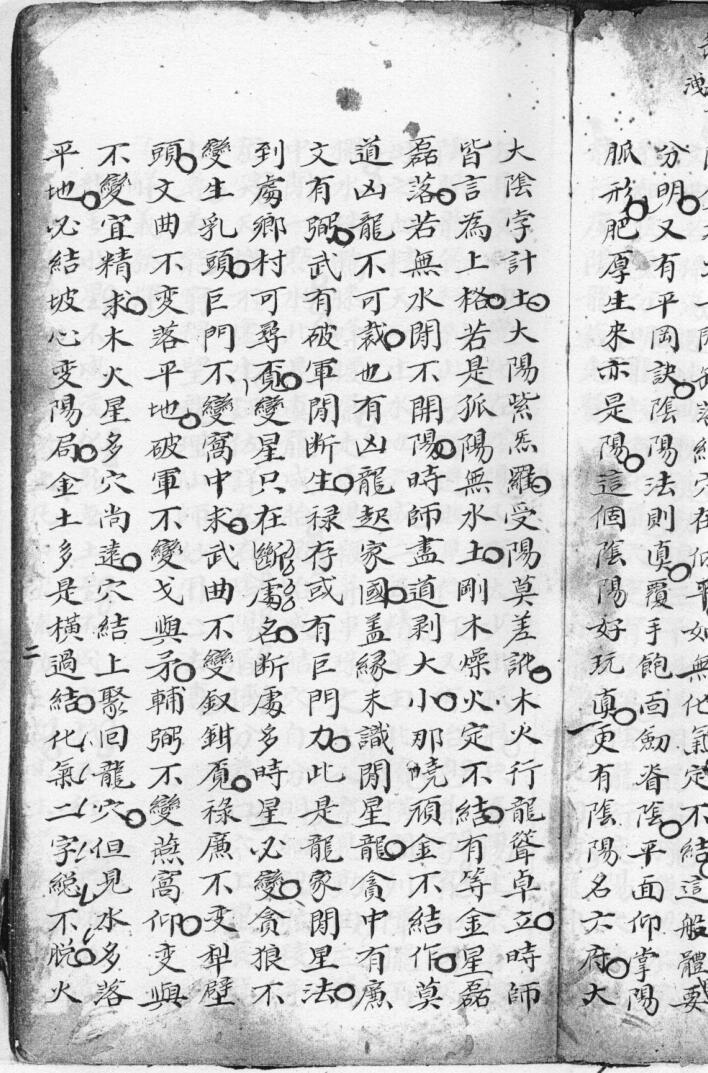 缺落結穴在低平如無化氣定不結這般體要
分明又有平岡訣陰陽法則真覆手飽面劔脊陰平面仰掌陽
脈形肥厚生來亦是陽這個陰陽好玩真更有陰陽名六府大
大陰孛計土大陽紫炁羅受陽莫差訛木火行龍聳卓立時師
皆言為上格若是孤陽無水土剛木燥火定不結有等金星磊
磊落若無水閒不開陽時師盡道剥大小那曉頑金不結作莫
道凶龍不可裁也有凶龍起家國盖縁未識閒星龍貪中有廉
文有弼武有破軍閒斷生禄存或有巨門力此是龍家閒星法
到處鄉村可尋覔變星只在斷處名断處多時星必變貪狼不
變生乳頭巨門不變窩中求武曲不變釵鉗覔祿廉不变犁壁
頭文曲不变落平地破軍不變戈與矛輔弼不變燕窩仰变與
不變宜精求木火星多穴尚遠穴結上聚回龍穴但見水多落
平地必結坡心变陽局金土多是横過結化氣二字総不脱火
二